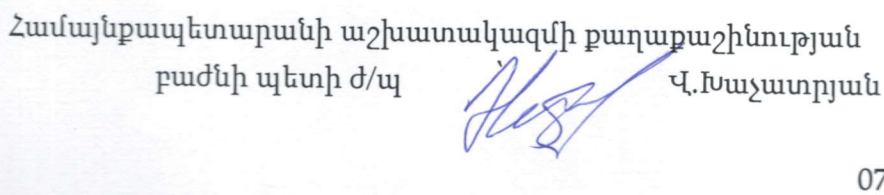 Համայնքապետարանի աշխատակազմի քաղաքաշինության
բաժնի պետի ժ/պ՝ Վ.Խաչատրյան
07